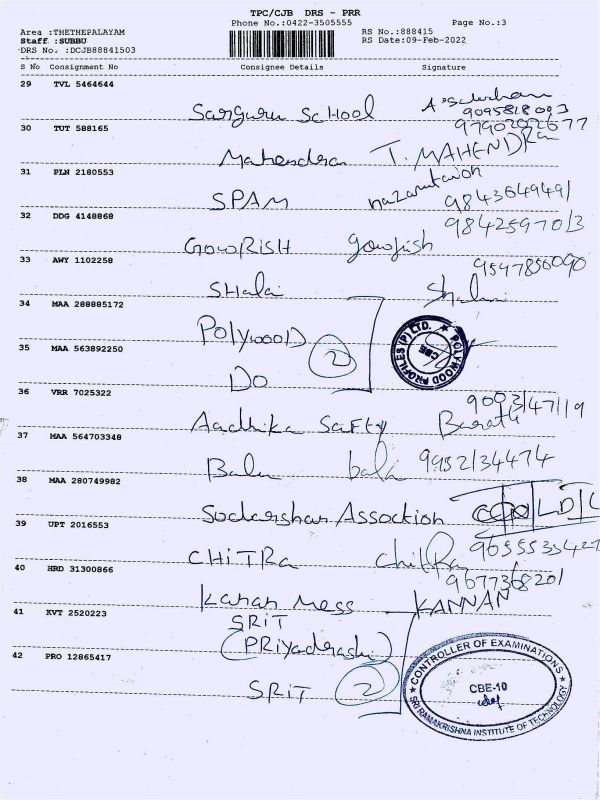 TPC/CJB DRS - PRR
Phone No.:0422-3505555 Page No.:3
Area :THETHEPALAYAM RS No.:888415
Staff :SUBBU RS Date:09-Feb-2022
DRS No. :DCJB88841503
S No Consignment No Consignee Details Signature
29 TVL 5464644
Sarguru School
9095818093
30 TUT 588165 9790202677
Mahendra T. MAHENDRa
31 PLN 2180553
SPAM 9843649491
32 DDG 4148868 9842597013
GOWRISH gowrish
33 AWY 1102258 9597856090
SHalai Shalini
34 MAA 288885172
POLYWOOD
POLYWOOD PROFILES (P) LTD. CBE
35 MAA 563892250 2
DO
36 VRR 7025322 9003147119
Aadhika Safty Barath
37 MAA 564703348
Bala bala 9952134474
38 MAA 280749982
Sudarshan Assoction
39 UPT 2016553
CHITRa Chitra 9655535427
40 HRD 31300866 9677368201
Kanan Mess KANNAN
41 KVT 2520223
SRIT
(PRiyadrashi)
42 PRO 12865417
SRIT 2
CONTROLLER OF EXAMINATIONS
CBE-10
SRI RAMAKRISHNA INSTITUTE OF TECHNOLOGY